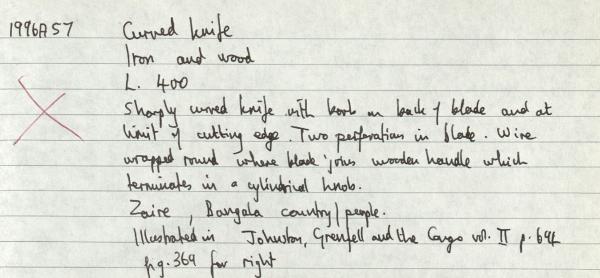 1996A57 Curved knife
Iron and wood
L. 400
Sharply curved knife with barb on back of blade and at
limit of cutting edge. Two perforations in blade. Wire
wrapped round where blade joins wooden handle which
terminates in a cylindrical knob.
Zaire, Bangala country/people.
Illustrated in Johnston, Grenfell and the Congo vol. II p. 694
fig. 369 far right